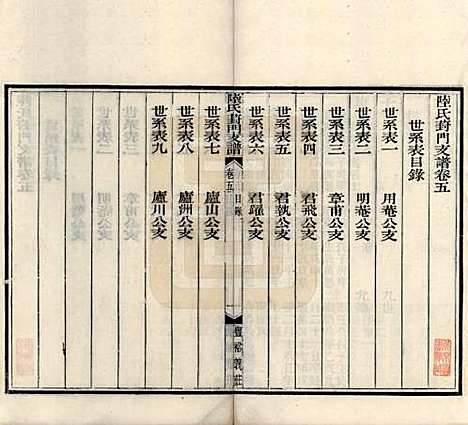 陸氏葑門支譜卷五
世系表目錄
世系表一　用菴公支
世系表二　明菴公支
世系表三　章甫公支
世系表四　君飛公支
世系表五　君執公支
世系表六　君躍公支
陸氏葑門支譜　卷五　目錄　一　豐裕義莊
世系表七　廬山公支
世系表八　廬洲公支
世系表九　廬川公支